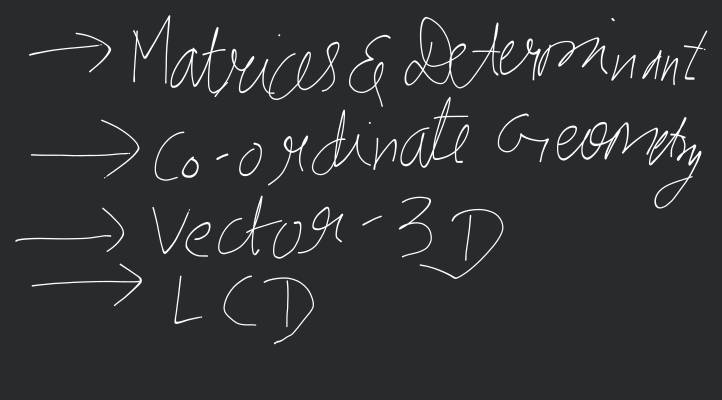 → Matrices & Determinant
→ Co-ordinate Geometry
→ Vector-3D
→ LCD